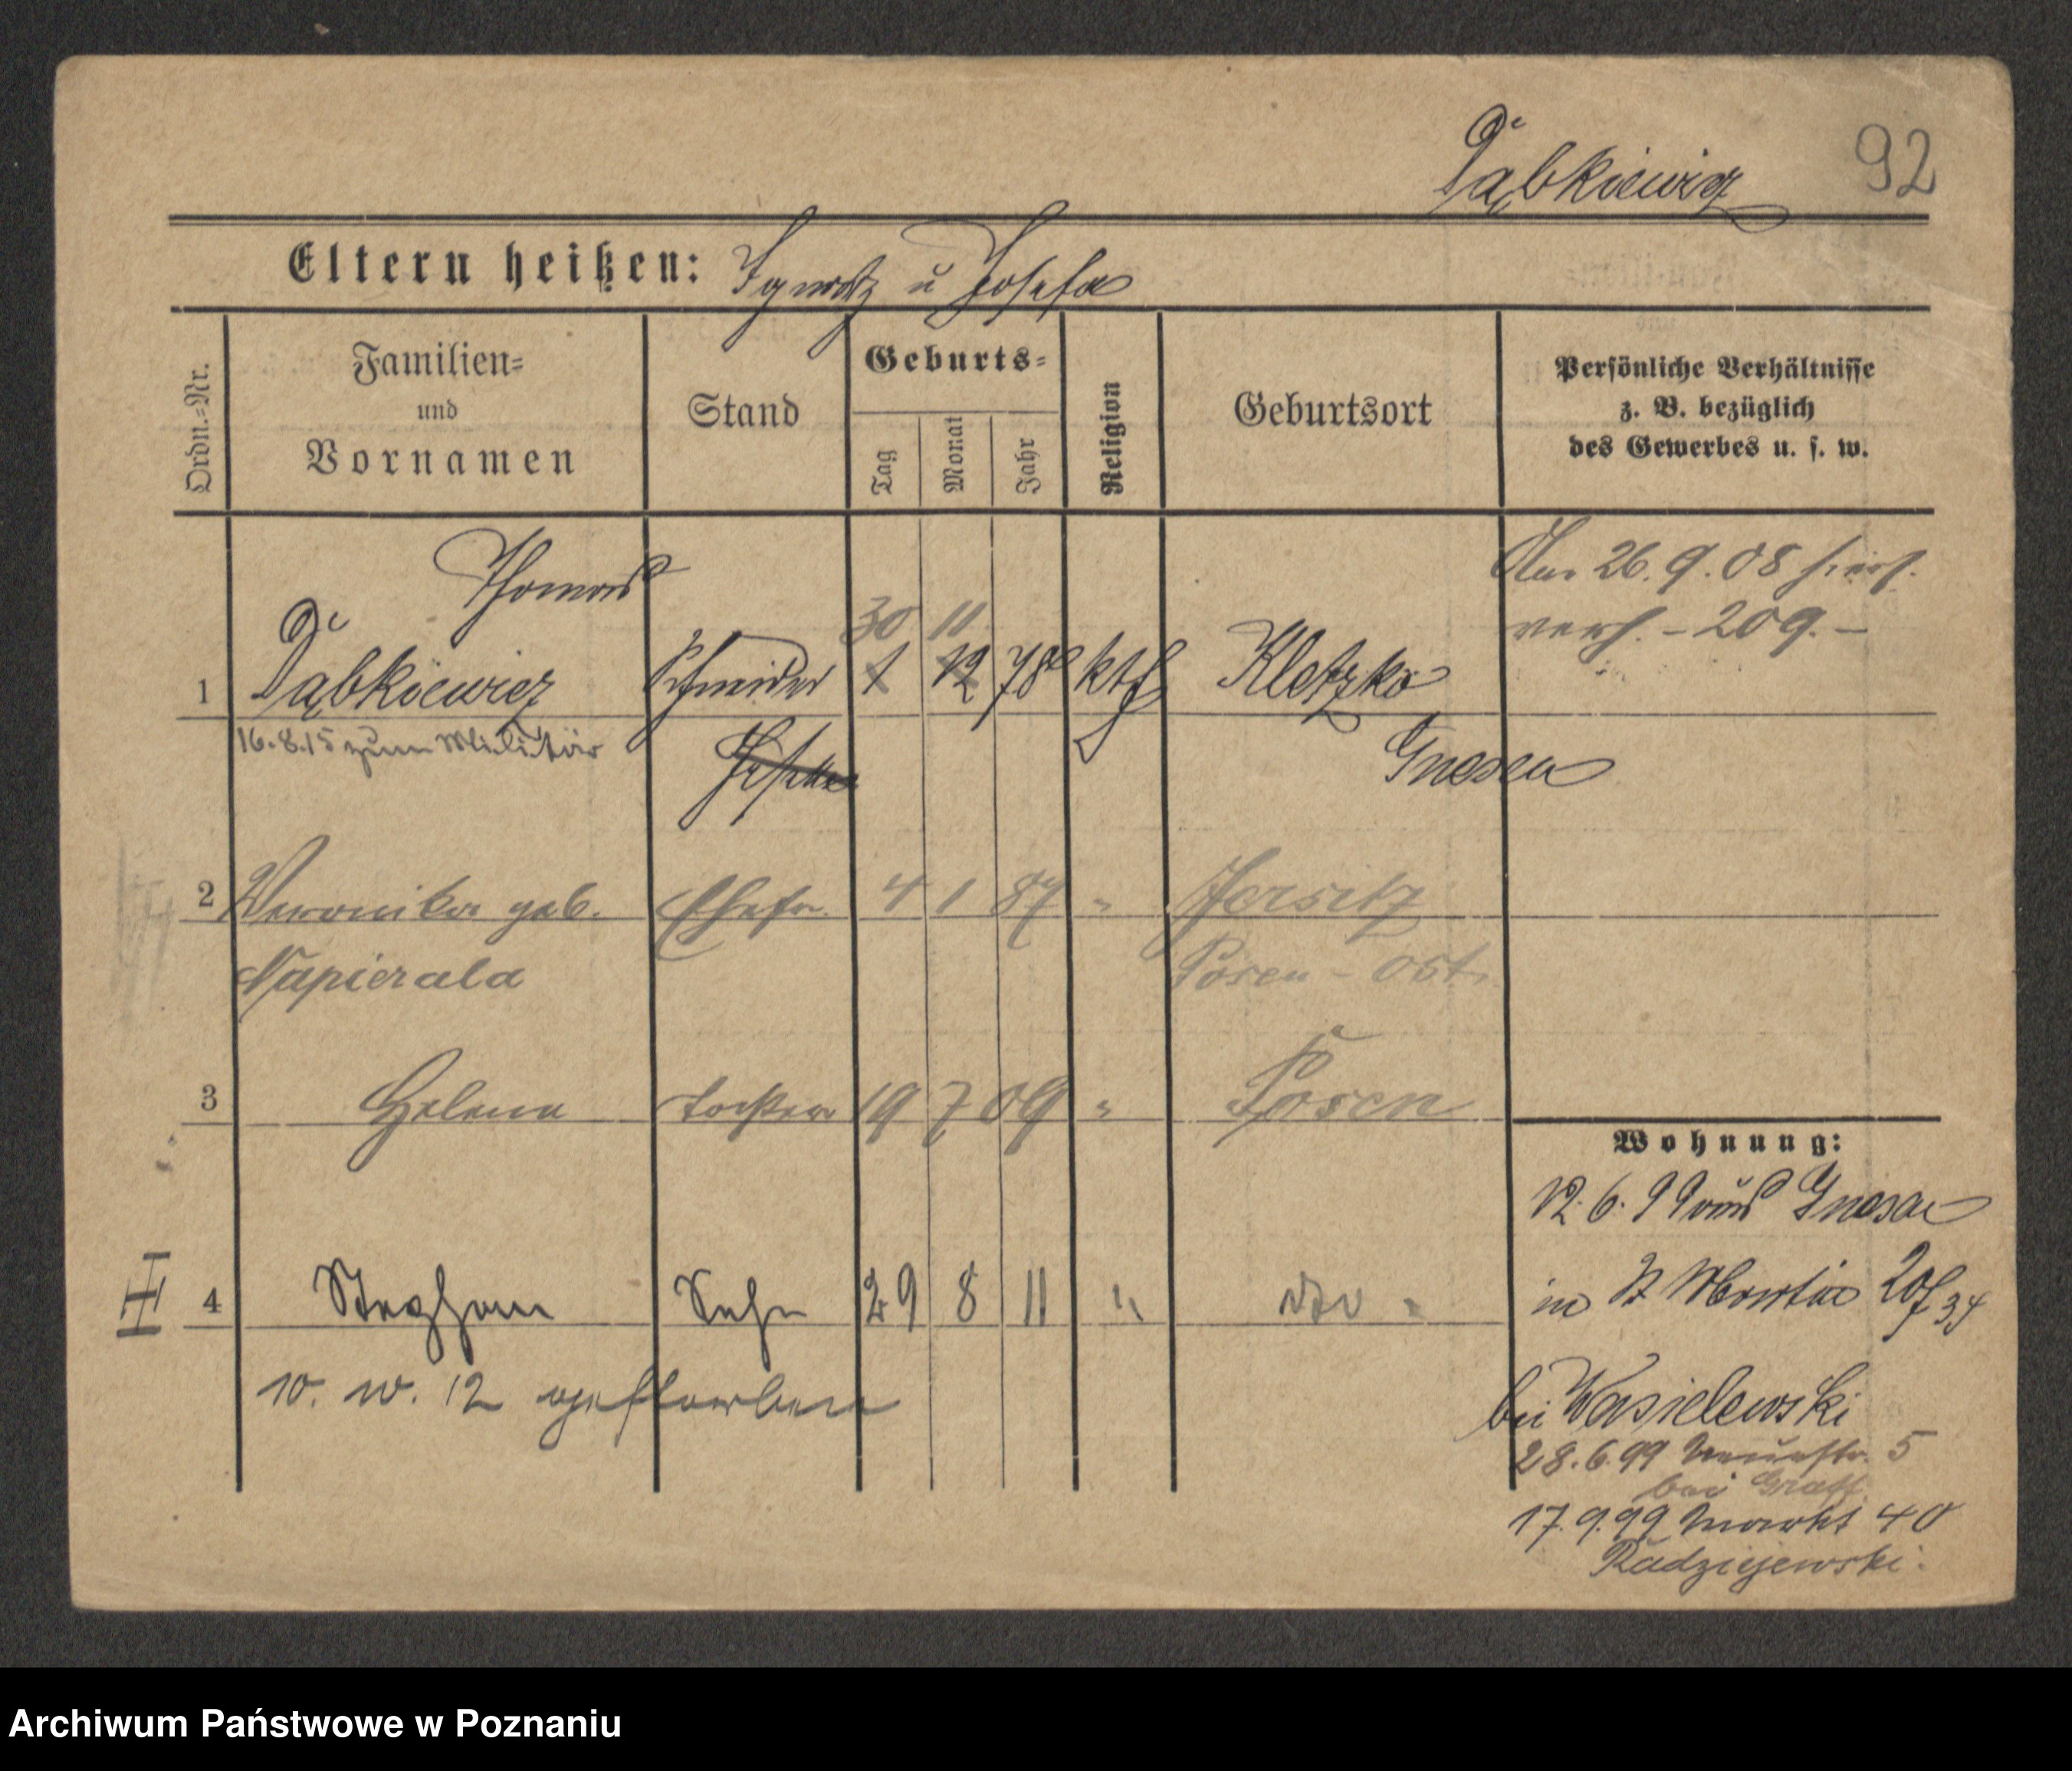 Dąbkiewicz 92
Eltern heißen: Ignatz u Josefa
Ordn.=Nr.
Familien=
und
Vornamen
Stand
Geburts=
Tag
Monat
Jahr
Religion
Geburtsort
Persönliche Verhältnisse
z. B. bezüglich
des Gewerbes u. s. w.
Thomas
30 11
1 Dąbkiewicz Schneider 1 12 78 kth Kletzko
Geselle
Gnesen
16.8.15 zum Militär
26.9.08 hier
verh. - 209. -
2 Veronika geb. Ehefr. 4 1 87 " Jersitz
Napierala Posen - Ost.
3 Helena Tochter 19 7 09 " Posen
H 4 Stephan Sohn 29 8 11 " dto "
10. 10. 12 gestorben
Wohnung:
12.6.99 aus Gnesen
in St Martin 20
bei Wasielewski
28.6.99 Neuestr. 5
bei Graff
17.9.99 Markt 40
Radziejewski.
Archiwum Państwowe w Poznaniu